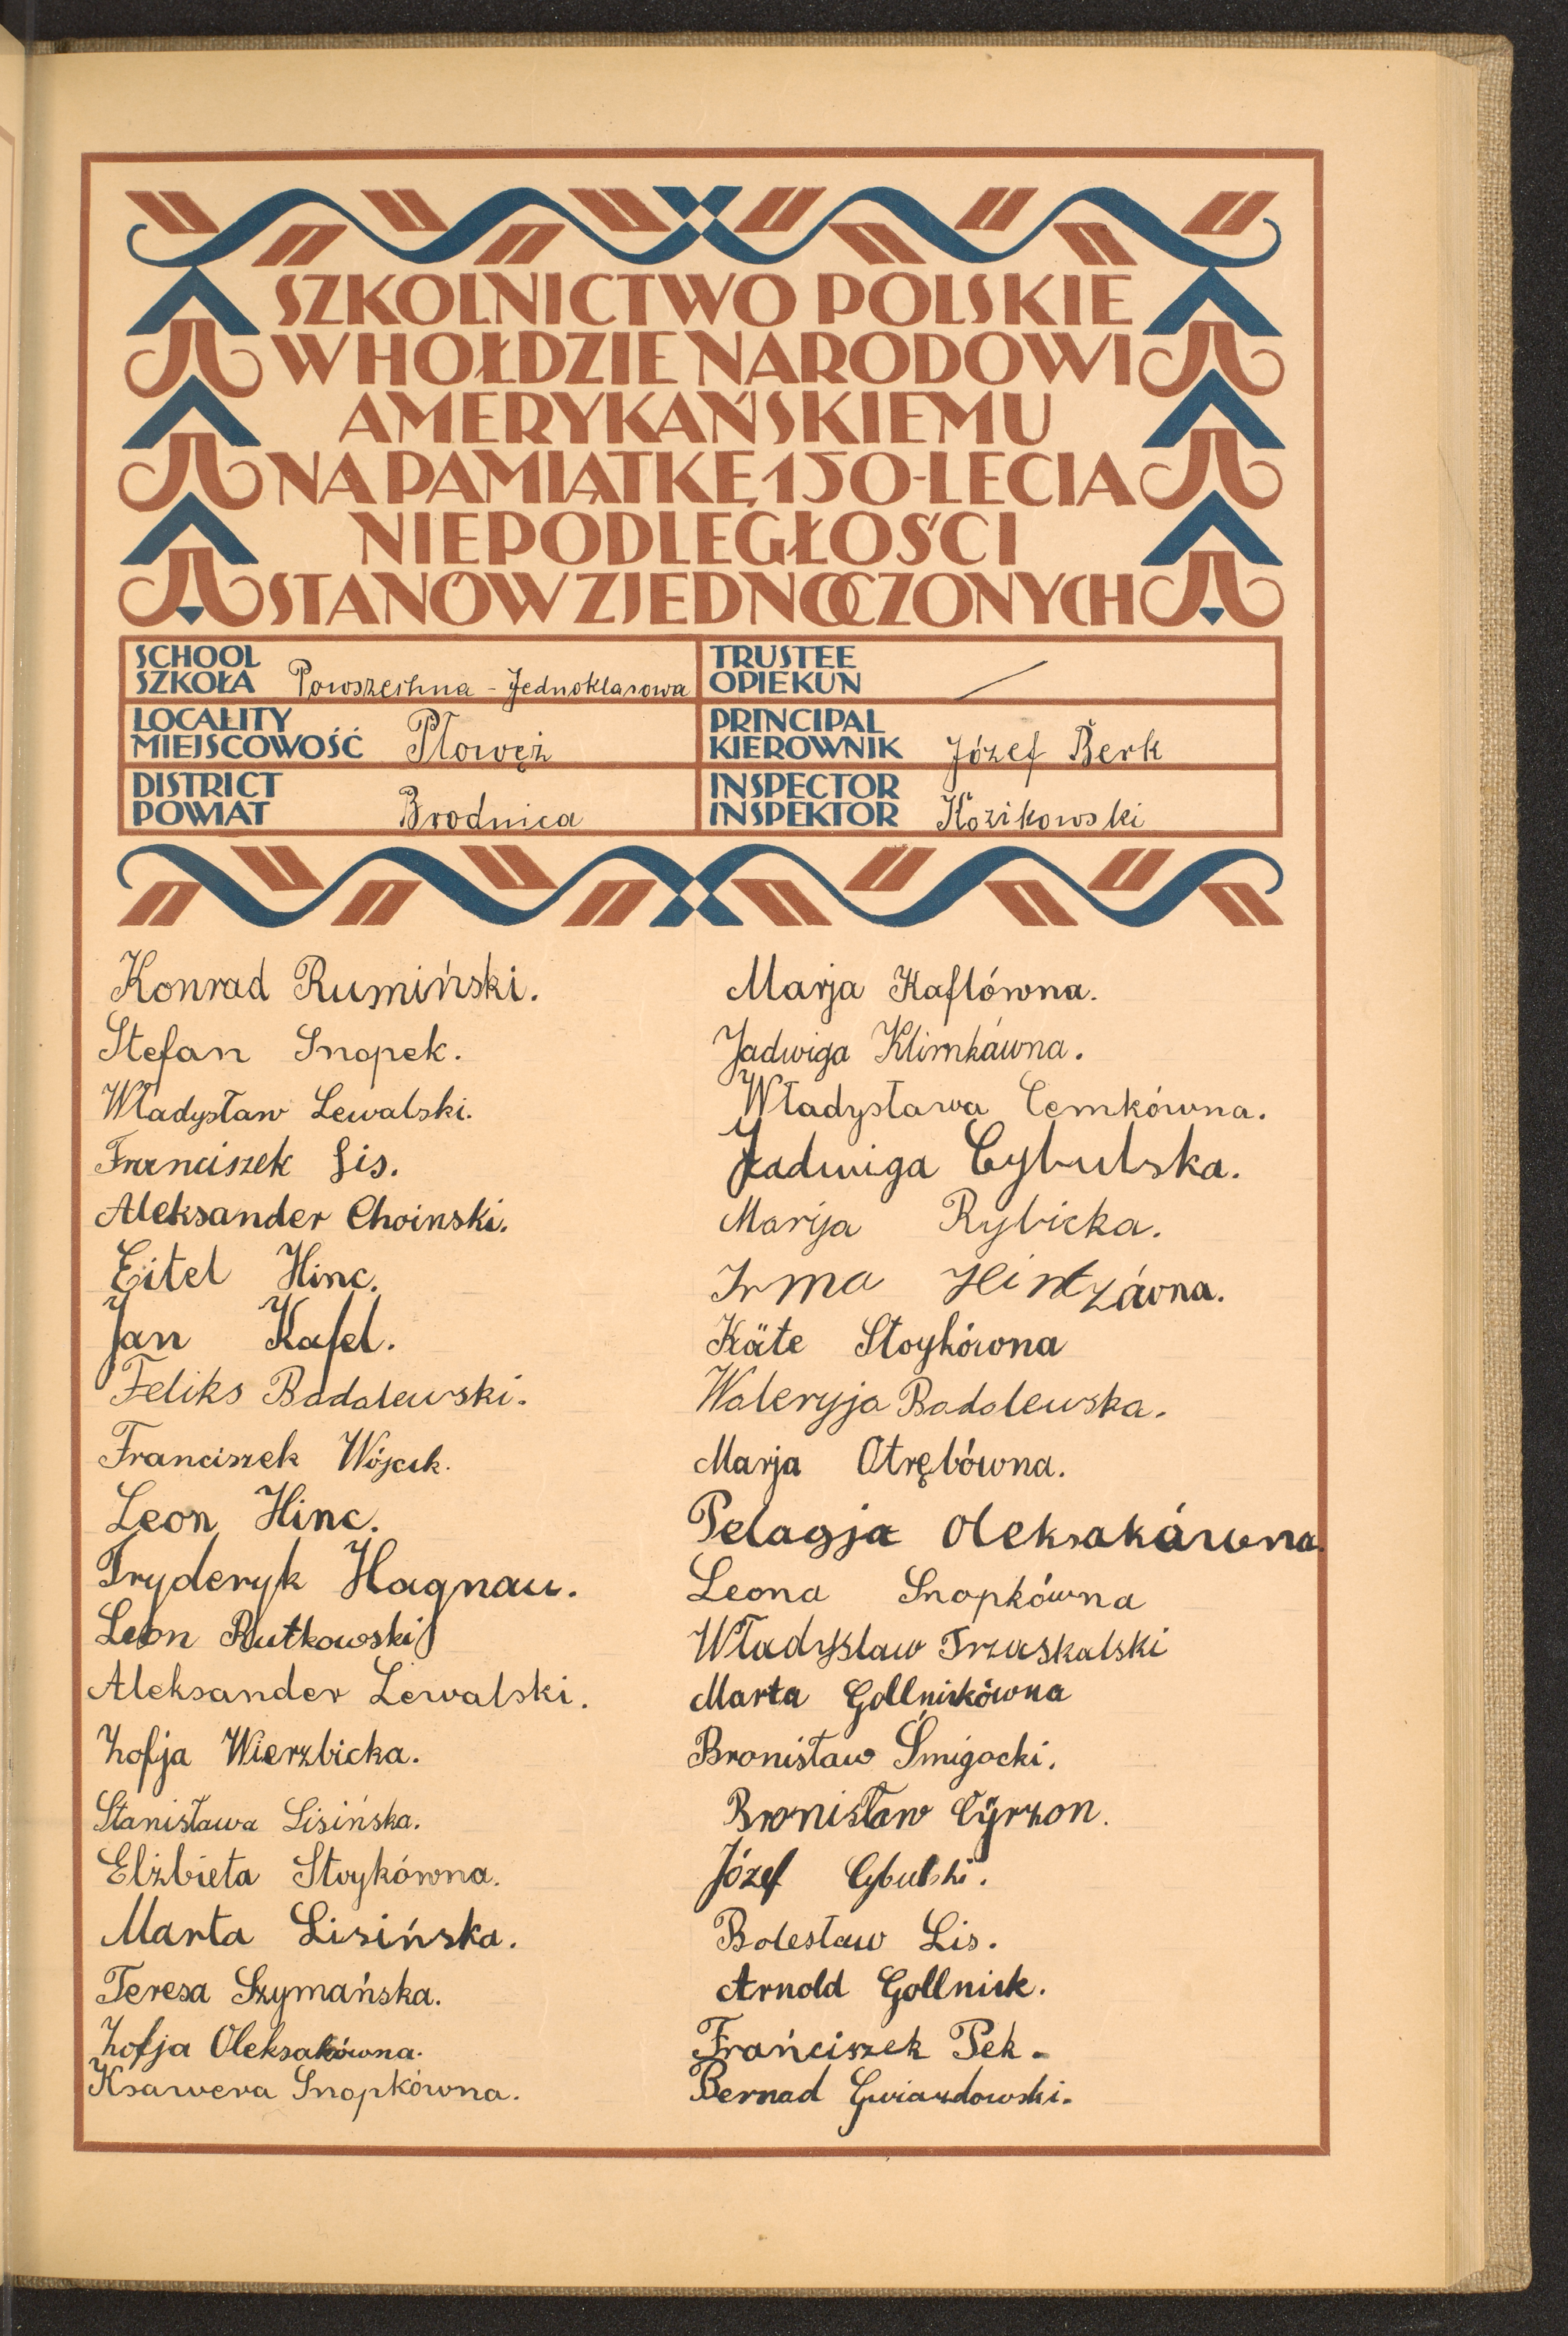 SZKOLNICTWO POLSKIE
W HOŁDZIE NARODOWI
AMERYKAŃSKIEMU
NA PAMIĄTKĘ 150-LECIA
NIEPODLEGŁOŚCI
STANÓW ZJEDNOCZONYCH
SCHOOL
SZKOŁA Powszechna - Jednoklasowa
TRUSTEE
OPIEKUN
LOCALITY
MIEJSCOWOŚĆ Płowęż
PRINCIPAL
KIEROWNIK Józef Berk
DISTRICT
POWIAT Brodnica
INSPECTOR
INSPEKTOR Kozikowski
Konrad Rumiński.
Stefan Snopek.
Władysław Lewalski.
Franciszek Lis.
Aleksander Choinski.
Eitel Hinc.
Jan Kafel.
Feliks Badalewski.
Franciszek Wójcik.
Leon Hinc.
Fryderyk Hagnau.
Leon Rutkowski
Aleksander Lewalski.
Zofja Wierzbicka.
Stanisława Lisińska.
Elżbieta Stoykówna.
Marta Lisińska.
Teresa Szymańska.
Zofja Oleksakówna.
Ksawera Snopkówna.
Marja Kaflówna.
Jadwiga Klimkówna.
Władysława Cemkówna.
Jadwiga Cybulska.
Marija Rybicka.
Irma Hintzówna.
Käte Stoykówna
Waleryja Badalewska.
Marja Otrębówna.
Pelagja Oleksakówna.
Leona Snopkówna
Władysław Trzaskalski
Marta Gollnickówna
Bronisław Śmigocki.
Bronisław Cyrzon.
Józef Cybulski.
Bolesław Lis.
Arnold Gollnick.
Frańciszek Pek.
Bernad Gwiazdowski.